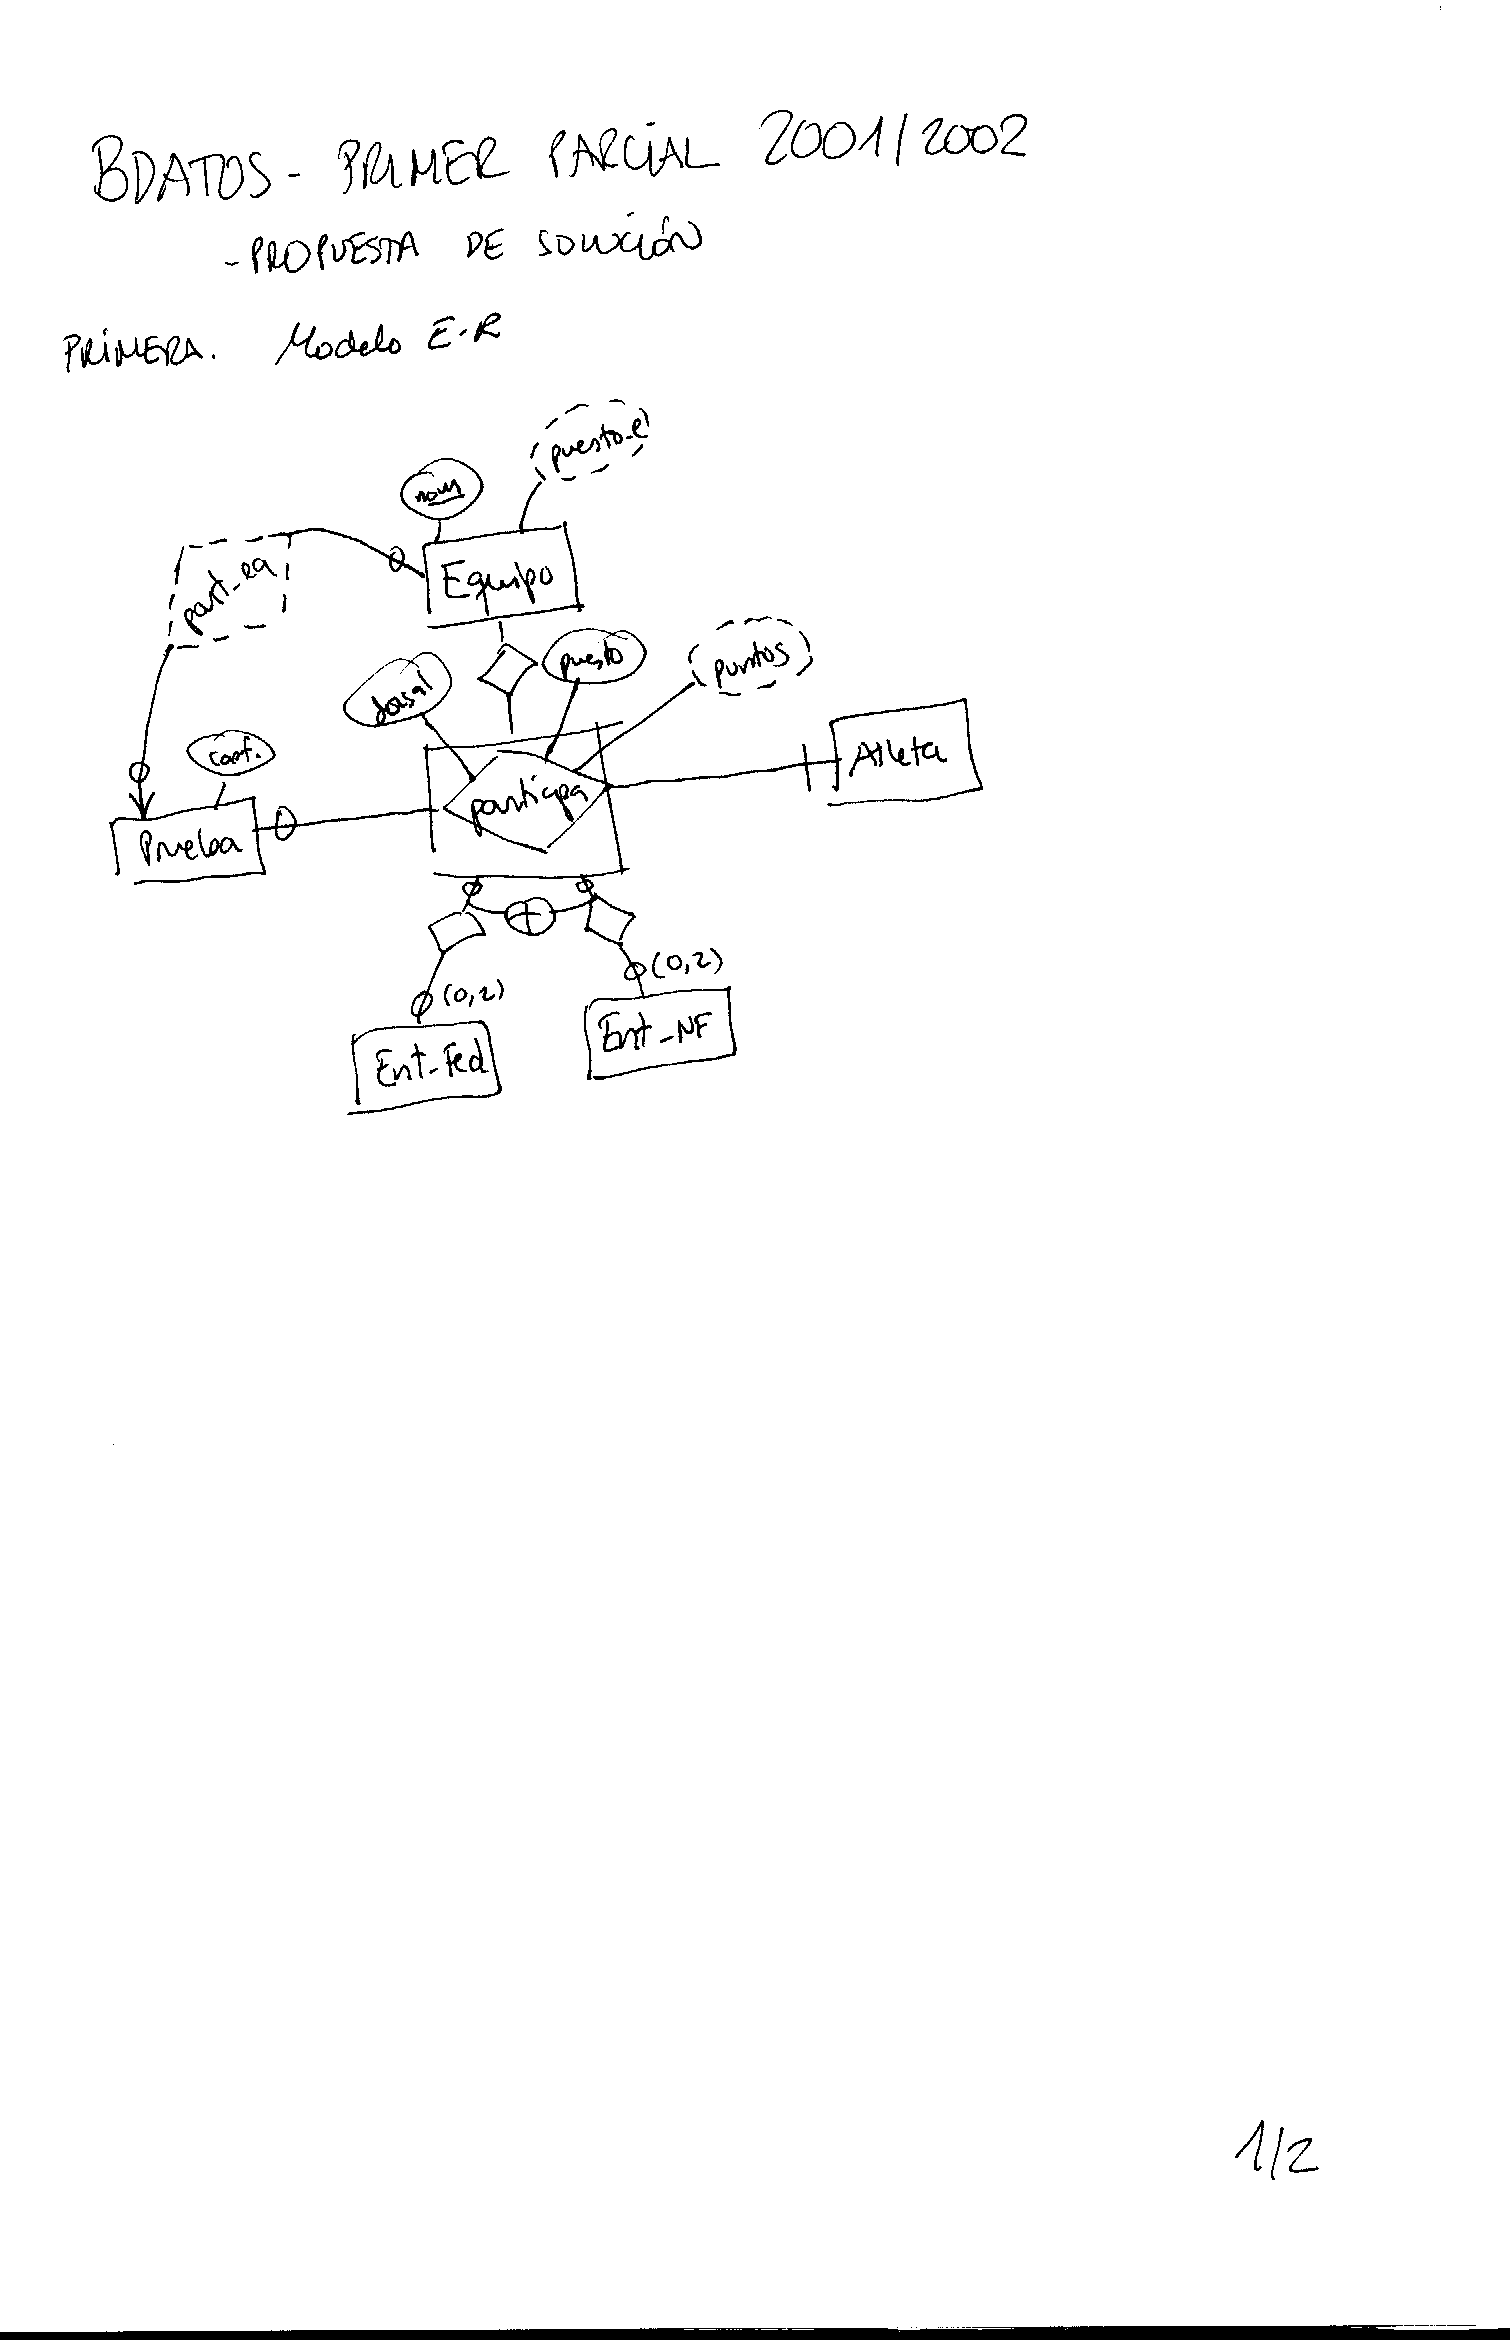 BDATOS - PRIMER PARCIAL 2001/2002
- PROPUESTA DE SOLUCIÓN
PRIMERA. Modelo E-R
puesto-e
nom
part-eq
Equipo
puesto
puntos
dorsal
Atleta
participa
Prueba
(0,2)
(0,2)
Ent-NF
Ent-Fed
1/2